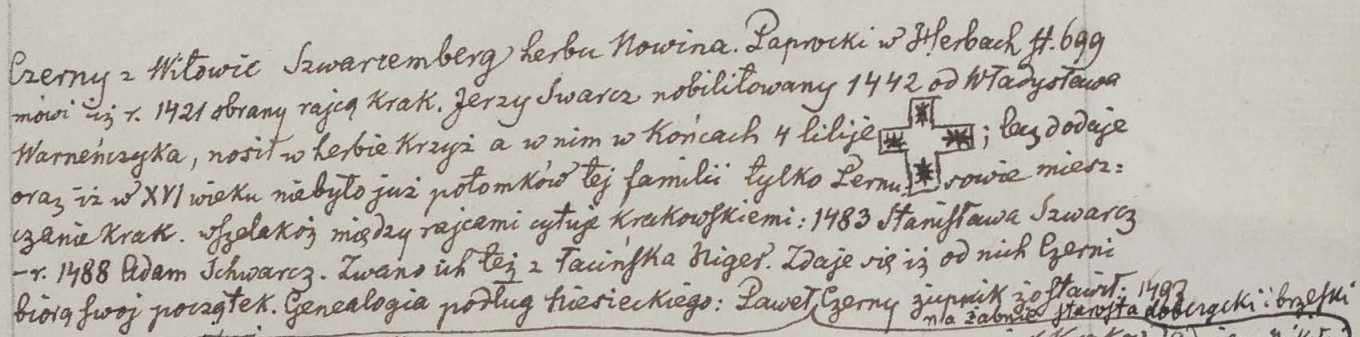 Czerny z Witowic Szwarcemberg herbu Nowina. Paprocki w Herbach f. 699
mówi iż r. 1421 obrany rajcą Krak. Jerzy Swarcz nobilitowany 1442 od Władysława
Warneńczyka, nosił w herbie Krzyż a w nim w Końcach 4 lilije ; lecz dodaje
oraz iż w XVI wieku niebyło już potomków tej familii tylko Pernu sowie miesz:
czanie Krak. wszelakoż między rajcami cytuje Krakowskiemi: 1483 Stanisława Szwarcz
– r. 1488 Adam Schwarcz. Zwano ich też z łacińska Niger. Zdaje się iż od nich Czerni
biorą swój początek. Genealogia podług Niesieckiego: Paweł Czerny żupnik zostawił: 1493
na Żabnie starosta dobczycki i brzeski